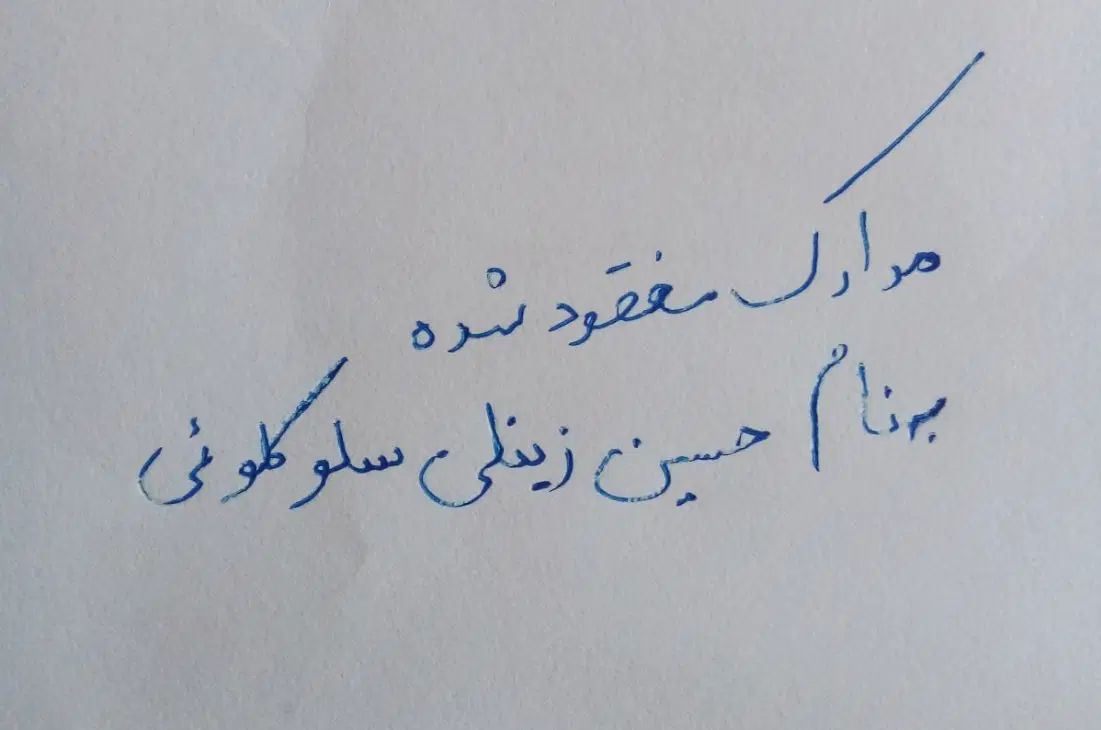 مدارک مفقود شده
به نام حسین زینلی سلوکلوئی